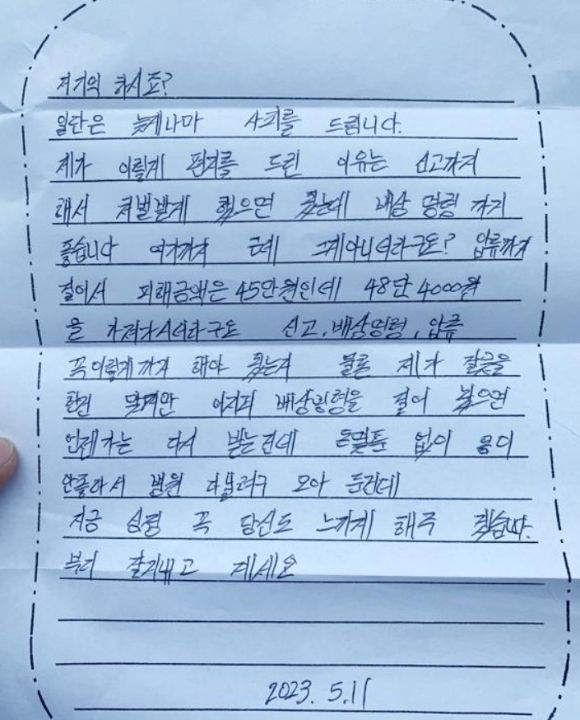 저기억 하시죠?
일단은 늦게나마 사죄를 드립니다.
제가 이렇게 편지를 드린 이유는 신고까지
해서 처벌받게 했으면 됬는데 배상 명령 까지
좋습니다 여기까지 근데 그게아니더라구요? 압류까지
걸어서 피해금액은 45만원인데 48만 4000원
을 가져가시더라구요 신고, 배상명령, 압류
꼭이렇게까지 해야 됬는지 물론 제가 잘못을
한건 맞지만 어차피 배상명령을 걸어 놨으면
언젠가는 다시 받는건데 돈몇푼 없이 옹이
안좋아서 병원 다닐려구 모아 둔건데
지금 심정 꼭 당신도 느끼게 해주 겠습니다.
부디 잘지내고 계세요
2023. 5.11